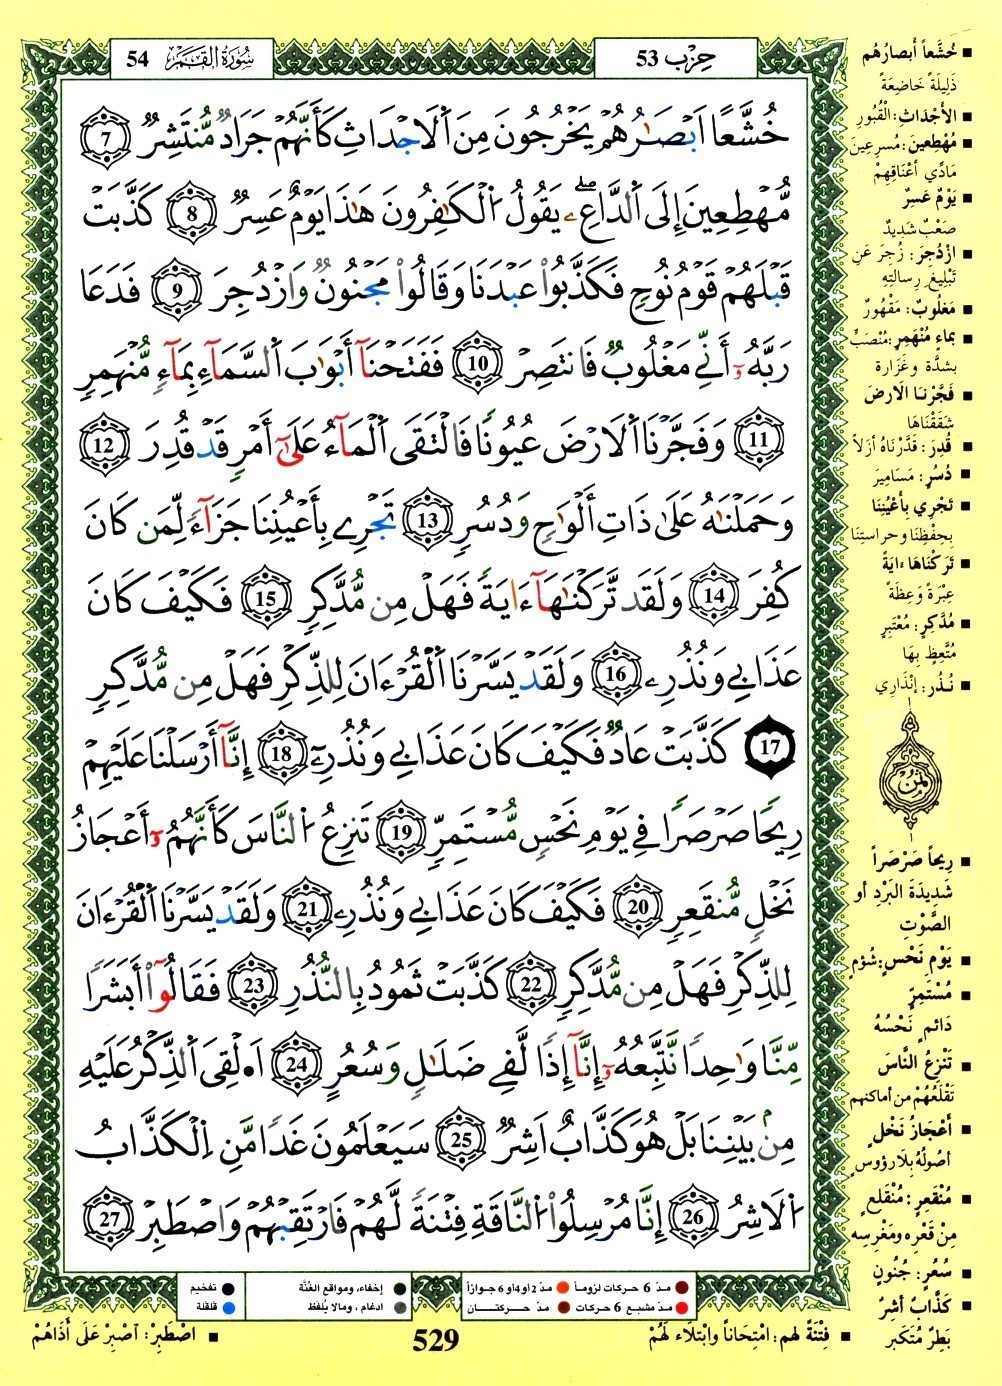 سُورَةُ القَمَر 54
حِزْب 53
خُشَّعًا اَبْصَٰرُهُمْ يَخْرُجُونَ مِنَ اَ۬لَاجْدَاثِ كَأَنَّهُمْ جَرَادٌ مُّنتَشِرٌ 7
مُّهْطِعِينَ إِلَى اَ۬لدَّاعِۦ يَقُولُ اُ۬لْكَٰفِرُونَ هَٰذَا يَوْمٌ عَسِرٌ 8 كَذَّبَتْ
قَبْلَهُمْ قَوْمُ نُوحٍ فَكَذَّبُواْ عَبْدَنَا وَقَالُواْ مَجْنُونٌ وَازْدُجِرَ 9 فَدَعَا
رَبَّهُۥٓ أَنِّے مَغْلُوبٌ فَانتَصِرْ 10 فَفَتَحْنَآ أَبْوَٰبَ اَ۬لسَّمَآءِ بِمَآءٍ مُّنْهَمِرٍ
11 وَفَجَّرْنَا اَ۬لَارْضَ عُيُونًا فَالْتَقَى اَ۬لْمَآءُ عَلَىٰٓ أَمْرٍ قَدْ قُدِرَ 12
وَحَمَلْنَٰهُ عَلَىٰ ذَاتِ أَلْوَٰحٍ وَدُسُرٍ 13 تَجْرِے بِأَعْيُنِنَا جَزَآءً لِّمَن كَانَ
كُفِرَ 14 وَلَقَد تَّرَكْنَٰهَآ ءَايَةً فَهَلْ مِن مُّدَّكِرٍ 15 فَكَيْفَ كَانَ
عَذَابِے وَنُذُرِۦ 16 وَلَقَدْ يَسَّرْنَا اَ۬لْقُرْءَانَ لِلذِّكْرِ فَهَلْ مِن مُّدَّكِرٍ
17 كَذَّبَتْ عَادٌ فَكَيْفَ كَانَ عَذَابِے وَنُذُرِۦٓ 18 إِنَّآ أَرْسَلْنَا عَلَيْهِمْ
رِيحًا صَرْصَرًا فِے يَوْمِ نَحْسٍ مُّسْتَمِرٍّ 19 تَنزِعُ اُ۬لنَّاسَ كَأَنَّهُمُۥٓ أَعْجَازُ
نَخْلٍ مُّنقَعِرٍ 20 فَكَيْفَ كَانَ عَذَابِے وَنُذُرِۦ 21 وَلَقَدْ يَسَّرْنَا اَ۬لْقُرْءَانَ
لِلذِّكْرِ فَهَلْ مِن مُّدَّكِرٍ 22 كَذَّبَتْ ثَمُودُ بِالنُّذُرِ 23 فَقَالُوٓاْ أَبَشَرًا
مِّنَّا وَٰحِدًا نَّتَّبِعُهُۥٓ إِنَّآ إِذًا لَّفِے ضَلَٰلٍ وَسُعُرٍ 24 اَ•لْقِىَ اَ۬لذِّكْرُ عَلَيْهِ
مِنۢ بَيْنِنَا بَلْ هُوَ كَذَّابٌ اَشِرٌ 25 سَيَعْلَمُونَ غَدًا مَّنِ اِ۬لْكَذَّابُ
اُ۬لَاشِرُ 26 إِنَّا مُرْسِلُواْ اُ۬لنَّاقَةِ فِتْنَةً لَّهُمْ فَارْتَقِبْهُمْ وَاصْطَبِرْ 27
خُشَّعاً أَبصَارُهُم
ذَلِيلَةً خَاضِعَةً
الأَجْدَاث: القُبُورِ
مُهْطِعينَ: مُسرِعِينَ
مَادِّي أَعْنَاقِهِمْ
يَوْمٌ عَسِرٌ
صَعْبٌ شَدِيدٌ
ازْدُجِرَ: زُجِرَ عَنِ
تَبْلِيغِ رِسالَتِهِ
مَغلُوبٌ: مَقْهُورٌ
بماءٍ مُنْهَمِرٍ: مُنْصَبٍّ
بشدَّة وغَزَارة
فَجَّرْنَا الَارضَ
شَقَقْنَاهَا
قُدِرَ: قَدَّرْنَاهُ أزَلاً
دُسُرٍ: مَسَامِيرَ
تَجْرِي بِأَعْيُنِنَا
بِحِفْظِنَا وحراستِنَا
تَرَكْنَاهَا ءايَةً
عِبْرَةً وَعِظَةً
مُدَّكِرٍ: مُعْتَبِرٍ
مُتَّعِظٍ بِهَا
نُذُرِ: إنْذَارِي
ثُمُن
رِيحاً صَرْصَراً
شَدِيدَةَ البَرْدِ أو
الصَّوْتِ
يَوْمِ نَحْسٍ: شُؤمٍ
مُسْتَمِرٍّ
دَائمٍ نَحْسُهُ
تَنْزِعُ النَّاسَ
تَقْلَعُهُمْ من أماكنهم
أَعْجَازُ نَخْلٍ
أصُولُهُ بِلَا رؤوسٍ
مُنْقَعِرٍ: مُنْقَلِعٍ
مِنْ قَعْرِهِ ومَغْرِسِه
سُعُرٍ: جُنُونٍ
كَذَّابٌ أشِرٌ
بَطِرٌ مُتَكَبر
مدّ 6 حركات لزوماً
مدّ 2 أو 4 أو 6 جوازاً
إخفاء، ومواقع الغُنَّة
تفخيم
مدّ مشبع 6 حركات
مدّ حركتان
ادغام، ومالا يُلفظ
قلقلة
فِتْنَةً لهم: امْتِحَاناً وابْتِلَاء لَهُمْ
529
اصْطَبِرْ: اصْبِرْ عَلَى أذَاهُمْ